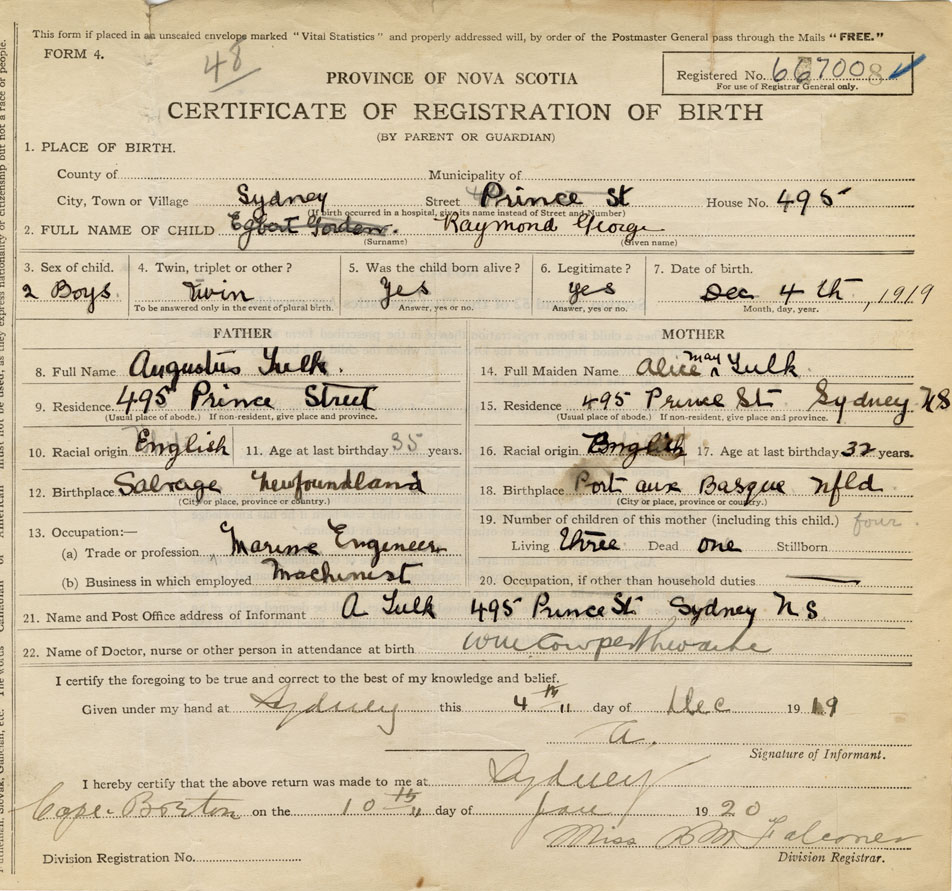 This form if placed in an unsealed envelope marked "Vital Statistics" and properly addressed will, by order of the Postmaster General pass through the Mails "FREE."
FORM 4.
48
PROVINCE OF NOVA SCOTIA
Registered No. 667008
For use of Registrar General only.
CERTIFICATE OF REGISTRATION OF BIRTH
(BY PARENT OR GUARDIAN)
1. PLACE OF BIRTH.
County of Municipality of
City, Town or Village Sydney Street Prince St House No. 495
(If birth occurred in a hospital, give its name instead of Street and Number)
2. FULL NAME OF CHILD Egbert Gordon. Raymond George
(Surname) (Given name)
3. Sex of child. 4. Twin, triplet or other? 5. Was the child born alive? 6. Legitimate? 7. Date of birth.
2 Boys. twin Yes yes Dec 4th, 1919
To be answered only in the event of plural birth. Answer, yes or no. Answer, yes or no. Month, day, year.
FATHER MOTHER
8. Full Name Augustus Tulk. 14. Full Maiden Name Alice May Tulk
9. Residence. 495 Prince Street 15. Residence. 495 Prince St Sydney N S
(Usual place of abode.) If non-resident, give place and province. (Usual place of abode.) If non-resident, give place and province.
10. Racial origin English 11. Age at last birthday 35 years. 16. Racial origin English 17. Age at last birthday 32 years.
12. Birthplace Salvage Newfoundland 18. Birthplace Port aux Basque Nfld
(City or place, province or country.) (City or place, province or country.)
13. Occupation:— 19. Number of children of this mother (including this child.) four
(a) Trade or profession Marine Engineer Living three Dead one Stillborn
(b) Business in which employed Machinist 20. Occupation, if other than household duties
21. Name and Post Office address of Informant A Tulk 495 Prince St. Sydney N S
22. Name of Doctor, nurse or other person in attendance at birth
I certify the foregoing to be true and correct to the best of my knowledge and belief.
Given under my hand at Sydney this 4th day of Dec 1919
A.
Signature of Informant.
I hereby certify that the above return was made to me at Sydney
Cape Breton on the 10th day of Jan 1920
Miss Falconer
Division Registration No. Division Registrar.